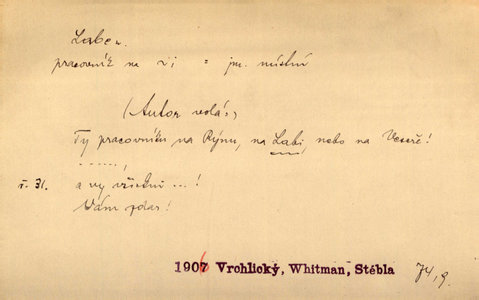 Labe
pracovník na = jm. místní
(Autor volá:)
Ty pracovníku na Rýnu, na Labi, nebo na Veseře!
......,
ř. 31. a vy všichni ...!
Vám zdar!
1906 Vrchlický, Whitman, Stébla 74,9.